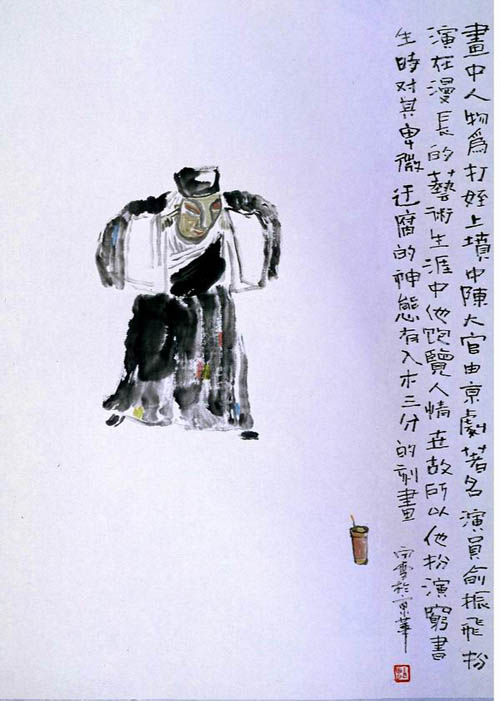 畫中人物爲打姪上墳中陳大官由京劇著名演員俞振飛扮
演在漫長的藝術生涯中他飽覽人情世故所以他扮演窮書
生時对其卑微迂腐的神態有入木三分的刻畫
於京華